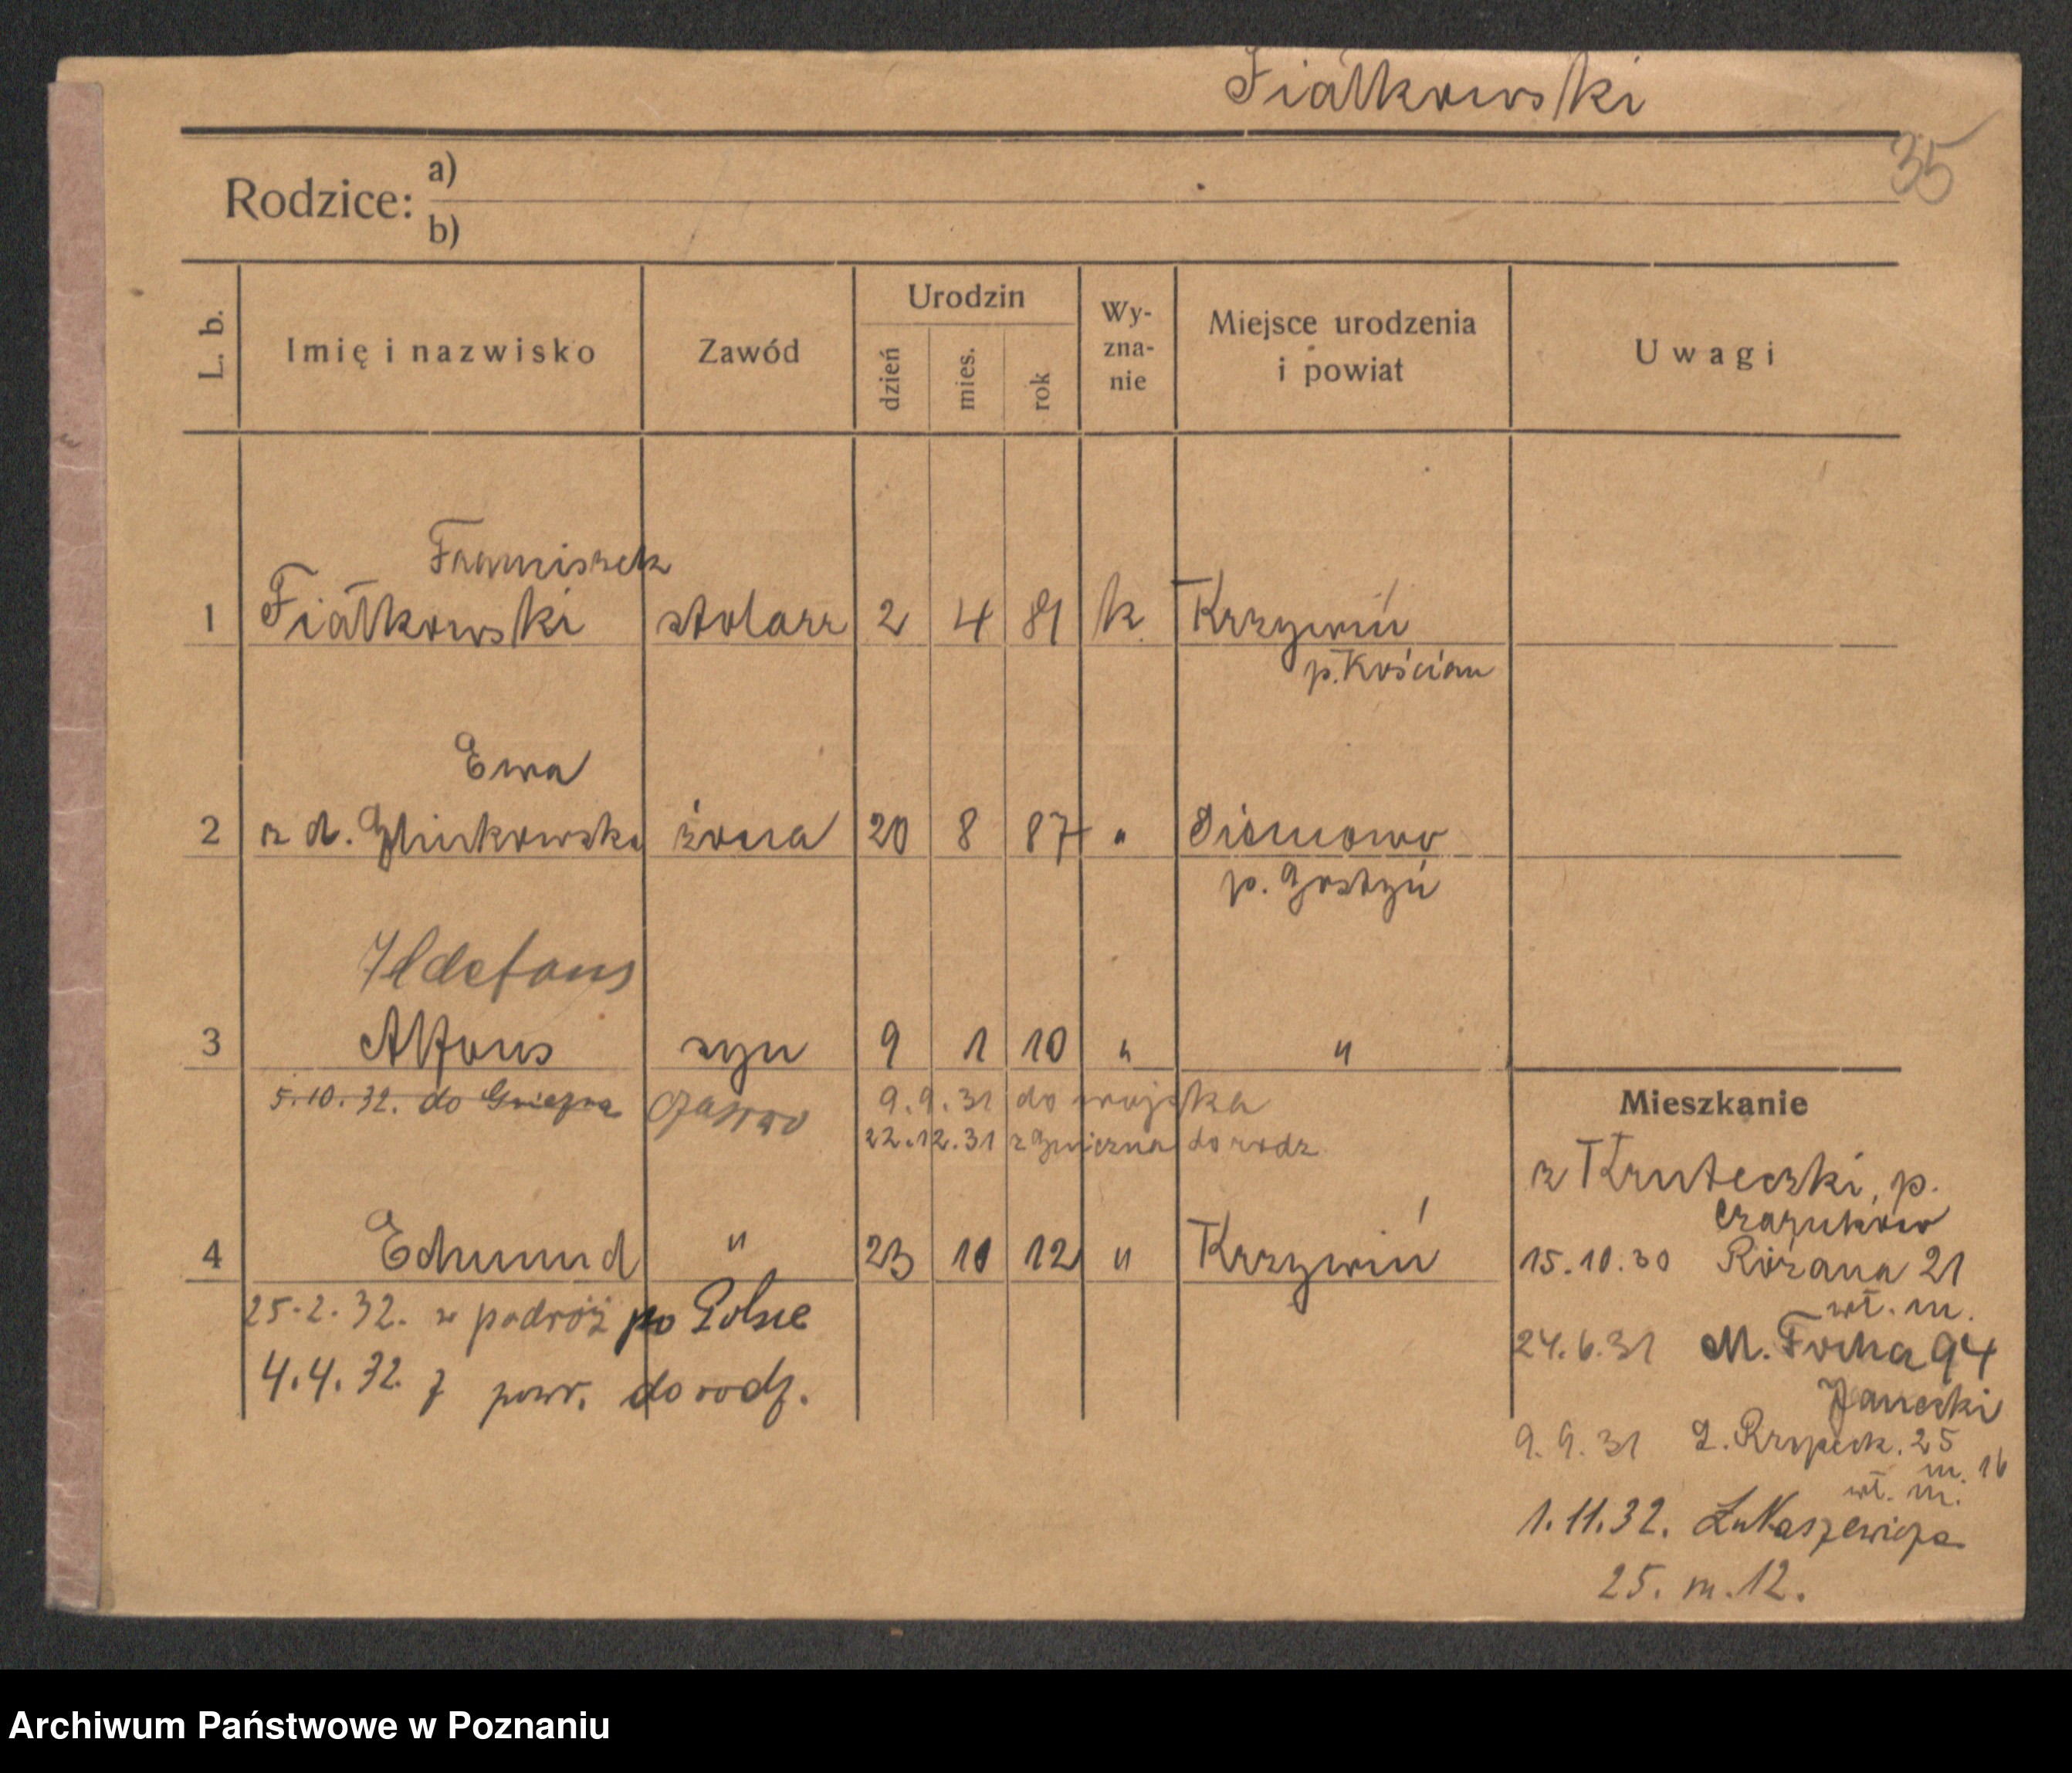 Fiałkowski
35
Rodzice: a)
b)
L. b.
Imię i nazwisko
Zawód
Urodzin
dzień
mies.
rok
Wy-
zna-
nie
Miejsce urodzenia
i powiat
Uwagi
Franciszek
1 Fiałkowski stolarz 2 4 81 k. Krzywiń
p. Kościan
Ewa
2 z d. Glinkowska żona 20 8 87 "
p. Gostyń
Ildefons
3 Alfons syn 9 1 10 " "
5.10.32. do Gniezna czasowo 9.9.31 do wojska
22.12.31 z Gniezna do rodz.
4 Edmund " 23 10 12 " Krzywiń
25.2.32. w podróż po Polsce
4.4.32. z powr. do rodz.
Mieszkanie
z Kruteczki, p.
Czarnków
15.10.30 Różana 21
wł. m.
24.6.31 M. Focha 94
Janecki
9.9.31 25
m. 16
wł. m.
1.11.32. Łukaszewicza
25. m. 12.
Archiwum Państwowe w Poznaniu